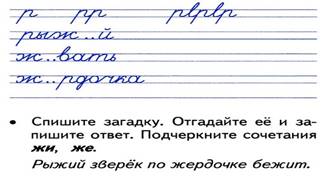 р рр рврврр
рыж..й
ж..вать
ж..рдочка
• Спишите загадку. Отгадайте её и за-
пишите ответ. Подчеркните сочетания
жи, же.
Рыжий зверёк по жердочке бежит.